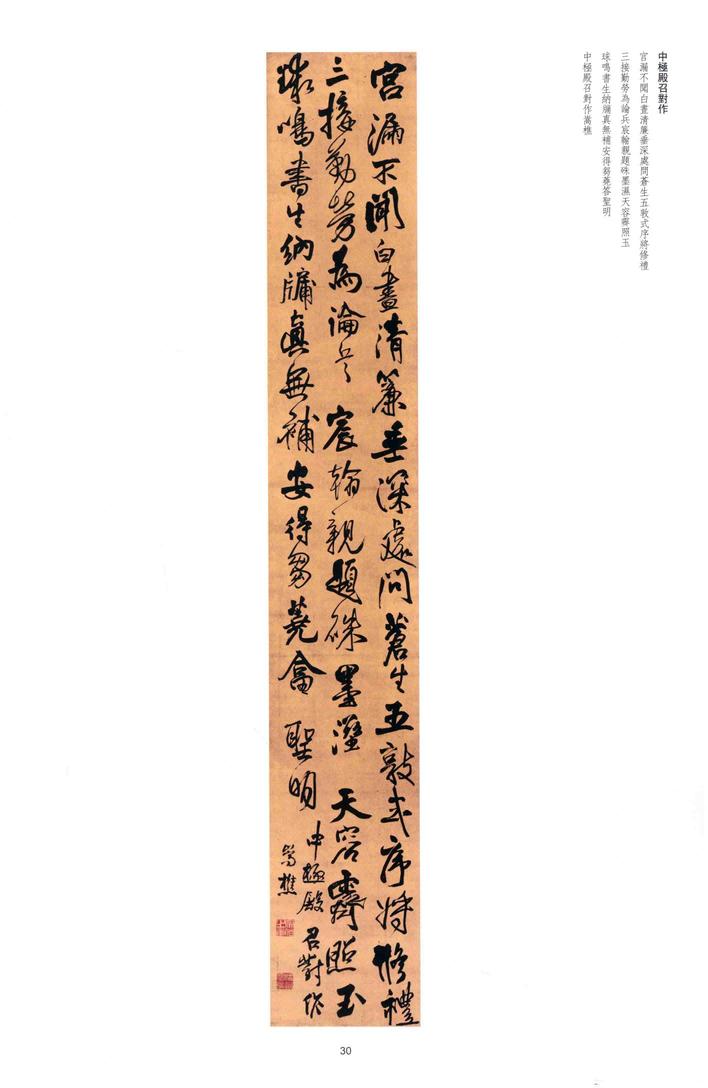 中極殿召對作
宮漏不聞白晝清廉垂深處問蒼生五敦式序將修禮
三接勤勞為論兵宸翰親題硃墨濕天容霽照玉
珠鳴書生納牖真無補安得芻蕘答聖明
中極殿召對作嵩樵
宮漏不聞白晝清簾垂深處問蒼生五敦式序將修禮
三接勤勞為論兵宸翰親題硃墨溼天容霽照玉
珠鳴書生納牖真無補安得芻蕘畣聖明
中極殿召對作
嵩樵
30